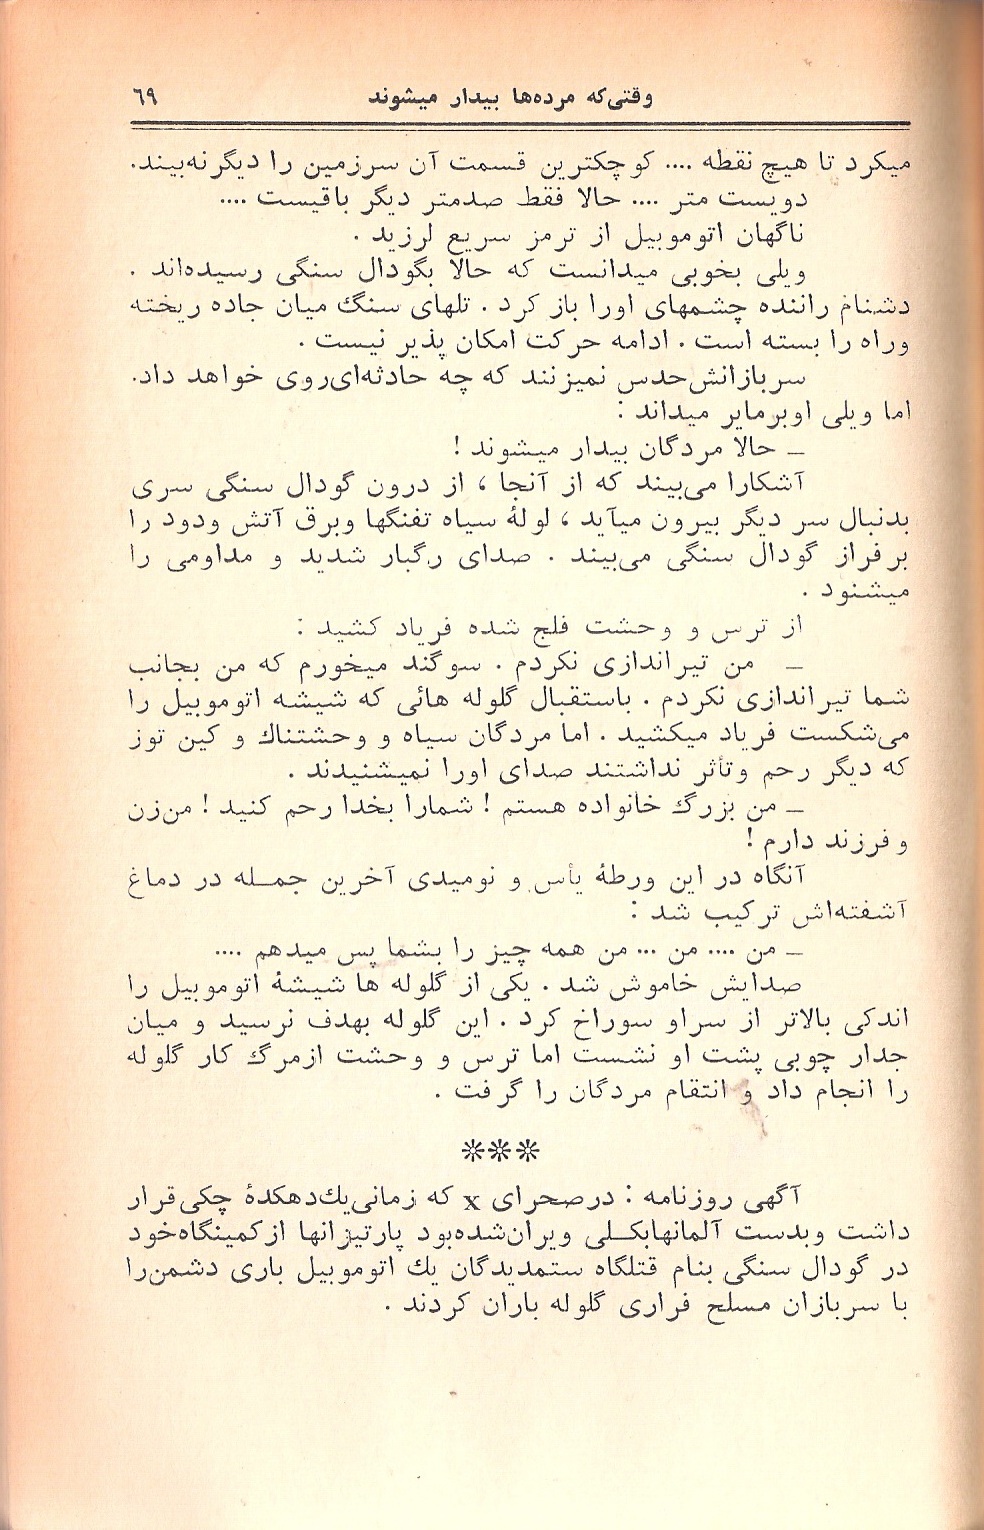 وقتی‌که مرده‌ها بیدار میشوند ٦٩
میکرد تا هیچ نقطه .... کوچکترین قسمت آن سرزمین را دیگر نه‌بیند.
دویست متر .... حالا فقط صدمتر دیگر باقیست ....
ناگهان اتوموبیل از ترمز سریع لرزید .
ویلی بخوبی میدانست که حالا بگودال سنگی رسیده‌اند .
دشنام راننده چشمهای اورا باز کرد . تلهای سنگ میان جاده ریخته
وراه را بسته است . ادامه حرکت امکان پذیر نیست .
سربازانش‌حدس نمیزنند که چه حادثه‌ای‌روی خواهد داد.
اما ویلی اوبرمایر میداند :
ـ حالا مردگان بیدار میشوند !
آشکارا می‌بیند که از آنجا ، از درون گودال سنگی سری
بدنبال سر دیگر بیرون میآید ، لولهٔ سیاه تفنگها وبرق آتش ودود را
برفراز گودال سنگی می‌بیند . صدای رگبار شدید و مداومی را
میشنود .
از ترس و وحشت فلج شده فریاد کشید :
ـ من تیراندازی نکردم . سوگند میخورم که من بجانب
شما تیراندازی نکردم . باستقبال گلوله هائی که شیشه اتوموبیل را
می‌شکست فریاد میکشید . اما مردگان سیاه و وحشتناك و کین توز
که دیگر رحم وتأثر نداشتند صدای اورا نمیشنیدند .
ـ من بزرگ خانواده هستم ! شمارا بخدا رحم کنید ! من‌زن
و فرزند دارم !
آنگاه در این ورطهٔ یأس و نومیدی آخرین جمـله در دماغ
آشفته‌اش ترکیب شد :
ـ من .... من ... من همه چیز را بشما پس میدهم ....
صدایش خاموش شد . یکی از گلوله ها شیشهٔ اتوموبیل را
اندکی بالاتر از سراو سوراخ کرد . این گلوله بهدف نرسید و میان
جدار چوبی پشت او نشست اما ترس و وحشت ازمرگ کار گلوله
را انجام داد و انتقام مردگان را گرفت .
***
آگهی روزنامه : درصحرای x که زمانی‌یك‌دهکدهٔ چکی‌قرار
داشت وبدست آلمانهابکـلی ویران‌شده‌بود پارتیزانها ازکمینگاه‌خود
در گودال سنگی بنام قتلگاه ستمدیدگان یك اتوموبیل باری دشمن‌را
با سربازان مسلح فراری گلوله باران کردند .